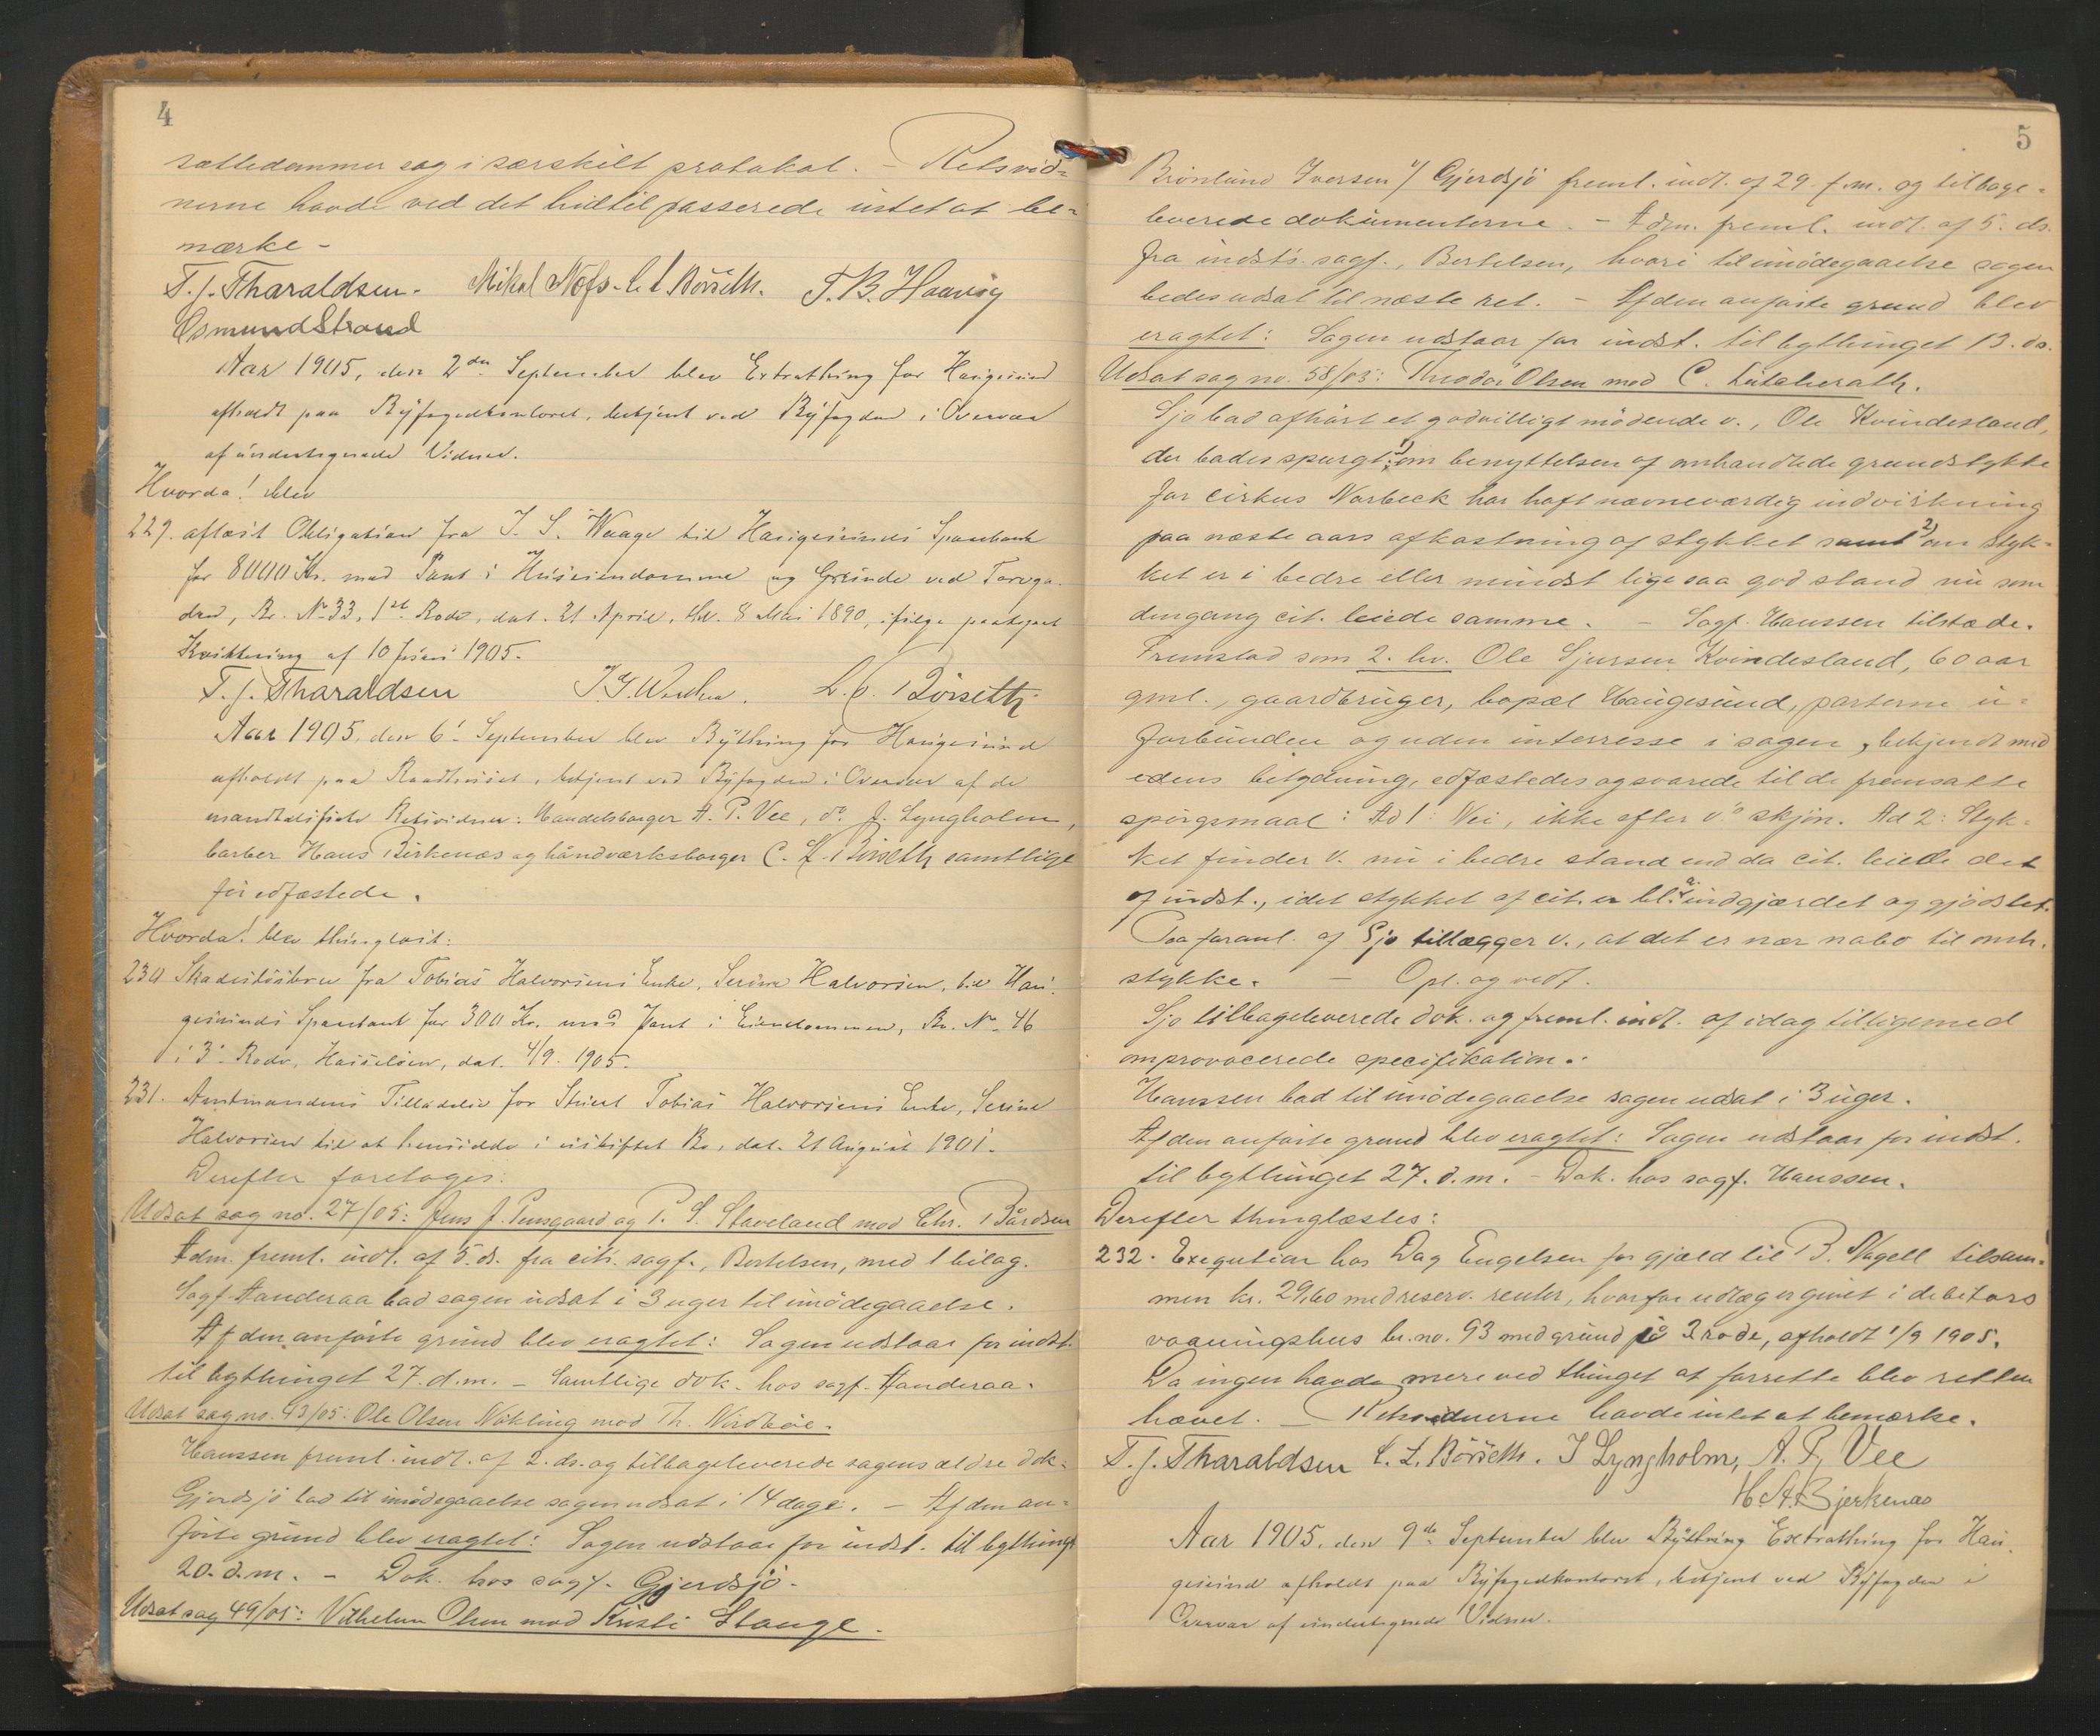 4
sættedommer sag i særskilt protokol. – Retsvid-
nerne havde ved det hidtil passerede intet at be-
mærke –
T. J. Tharaldsen. Mikal Næss. C. L. Börseth. T. B. Haavig
Osmund Strand
Aar 1905, den 2den September blev Extrathing for Haugesund
afholdt paa Byfogedkontoret, betjent ved Byfogden i Overvær
af undertegnede Vidner.
Hvorda! blev
229. aflæst Obligation fra I. S. Waage til Haugesunds Sparebank
for 8000 Kr. med Pant i Huseiendomme og Grunde ved Torvga-
den, Br. No 33, 1ste Rode, dat. 21 April, thl. 8 Mai 1890, ifølge paategnet
Kvittering af 10 Juni 1905.
T. J. Tharaldsen C. L. Börseth
Aar 1905, den 6te September blev Bything for Haugesund
afholdt paa Raadhuset, betjent ved Byfogden i Overvær af de
mandtalsførte Retsvidner: Handelsborger A. P. Vee, do J. Lyngholm,
barber Hans Birkenæs og håndværksborger C. L. Börseth samtlige
før edfæstede.
Hvorda! blev thinglæst:
230 Skadesløsbrev fra Tobias Halvorsens Enke, Serine Halvorsen, til Hau-
gesunds Sparebank for 300 Kr. med Pant i Eiendommen, Br. No 46
i 3. Rode, Hasseløen, dat. 4/9. 1905.
231. Amtmandens Tilladelse for Skred Tobias Halvorsens Enke, Serine
Halvorsen til at hensidde i uskiftet Bo, dat. 21 August 1901.
Derefter foretoges:
Udsat sag no. 27/05: Jens J. Pensgaard og P. S. Staveland mod Chr. Bårdsen
Adm. freml. indl. af 5. ds. fra cits. sagf., Bertelsen, med 1 bilag.
Sagf. Aanderaa bad sagen udsat i 3 uger til imødegaaelse.
Af den anførte grund blev eragtet: Sagen udstaar for indst.
til bythinget 27. d.m. – Samtlige dok. hos sagf. Aanderaa.
Udsat sag no. 43/05: Ole Olsen Nökling mod Th. Nirdböe.
Hanssen freml. indl. af 2. ds. og tilbageleverede sagens ældre dok.
Gjerdsjö bad til imødegaaelse sagen udsat i 14 dage. – Af den an-
førte grund blev eragtet: Sagen udstaar for indst. til bythinget
20. d.m. – Dok. hos sagf. Gjerdsjö.
Udsat sag 49/05: Vilhelm Olsen mod Kristi Stange.
5
Brönlund Iversen v/ Gjerdsjö freml. indl. af 29. f.m. og tilbage-
leverede dokumenterne. – Adm. freml. indl. af 5. ds.
fra indst's sagf., Bertelsen, hvori til imødegaaelse sagen
bedes udsat til næste ret. – Af den anførte grund blev
eragtet: Sagen udstaar for indst. til bythinget 13. ds.
Udsat sag no. 58/05: Theodor Olsen mod C. Lütcherath.
Sjo bad afhørt et godvilligt mödende v., Ole Kvindesland,
der bades spurgt: 1) om benyttelsen af omhandlede grundstykke
for cirkus Norbeck har haft nævneværdig indvirkning
paa næste aars afkastning af stykket samt 2) om styk-
ket er i bedre eller mindst lige saa god stand nu som
dengang cit. leiede samme. – Sagf. Hanssen tilstede.
Fremstod som 2. hv. Ole Sjursen Kvindesland, 60 aar
gml., gaardbruger, bopæl Haugesund, parterne u-
forbunden og uden interresse i sagen, bekjendt med
edens betydning, edfæstedes og svarede til de fremsatte
spörgsmaal: Ad 1: Nei, ikke efter v.s skjön. Ad 2: Styk-
ket finder v. nu i bedre stand end da cit. leiede det
af indst., idet stykket af cit. er bl. a. indgjærdet og gjödslet.
Paa foranl. af Sjo tillægger v., at det er nær nabo til omh.
stykke. – Opl. og vedt.
Sjo tilbageleverede dok. og freml. indl. af idag tilligemed
omprovocerede specifikation.
Hanssen bad til imødegaaelse sagen udsat i 3 uger.
Af den anførte grund blev eragtet: Sagen udstaar for indst.
til bythinget 27. d.m. – Dok. hos sagf. Hanssen.
Derefter thinglæstes:
232. Exeqution hos Dag Engelsen for gjæld til B. Nagell tilsam-
men kr. 29,60 med reserv. renter, hvorfor udlæg er givet i debitors
vaaningshus br. no. 93 med grund på 2 rode, afholdt 1/9 1905.
Da ingen havde mere ved thinget at forrette blev retten
hævet. – Retsvidnerne havde intet at bemærke.
T. J. Tharaldsen C. L. Börseth. J Lyngholm, A. P. Vee
H A. Bjerkenæs
Aar 1905, den 9de September blev Bything Extrathing for Hau-
gesund afholdt paa Byfogedkontoret, betjent ved Byfogden i
Overvær af undertegnede Vidner.